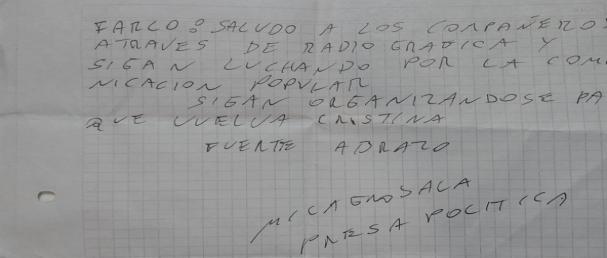 FARCO: SALUDO A LOS COMPAÑEROS
ATRAVES DE RADIO GRAFICA Y
SIGAN LUCHANDO POR LA COMU
NICACION POPULAR
SIGAN ORGANIZANDOSE PA
QUE VUELVA CRISTINA
FUERTE ABRAZO
MILAGRO SALA
PRESA POLITICA